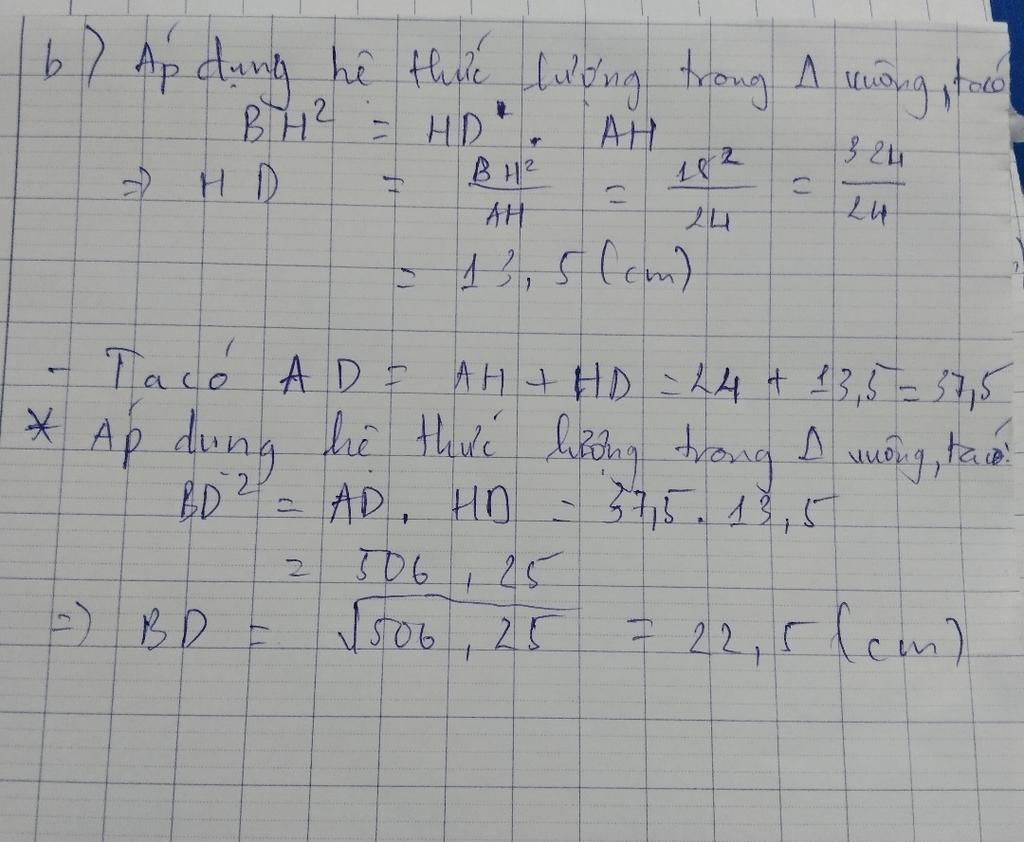 b) Áp dụng hệ thức lượng trong Δ vuông, ta có
BH² = HD . AH
=> HD = BH²/AH = 18²/24 = 324/24
= 13,5 (cm)
- Ta có AD = AH + HD = 24 + 13,5 = 37,5
* Áp dung hệ thức lượng trong Δ vuông, ta có:
BD² = AD . HD = 37,5 . 13,5
= 506,25
=> BD = √506,25 = 22,5 (cm)